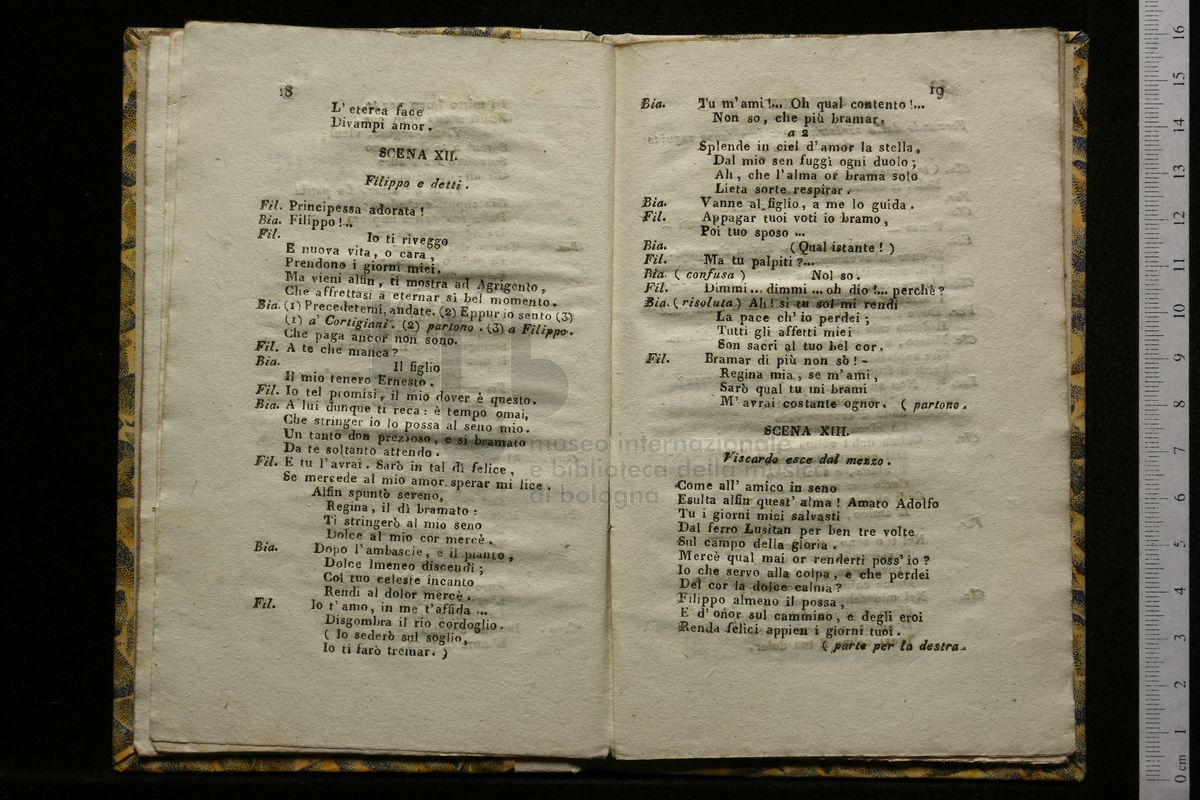 18
L' eterea face
Divampi amor.
SCENA XII.
Filippo e detti.
Fil. Principessa adorata!
Bia. Filippo!...
Fil. Io ti riveggo
E nuova vita, o cara,
Prendono i giorni miei.
Ma vieni alfin, ti mostra ad Agrigento,
Che affrettasi a eternar sì bel momento.
Bia. (1) Precedetemi, andate. (2) Eppur io sento (3)
(1) a' Cortigiani. (2) partono. (3) a Filippo.
Che paga ancor non sono.
Fil. A te che manca?
Bia. Il figlio
Il mio tenero Ernesto.
Fil. Io tel promisi, il mio dover è questo.
Bia. A lui dunque ti reca: è tempo omai,
Che stringer io lo possa al seno mio.
Un tanto don prezioso, e sì bramato
Da te soltanto attendo.
Fil. E tu l'avrai. Sarò in tal dì felice,
Se mercede al mio amor sperar mi lice.
Alfin spuntò sereno,
Regina, il dì bramato:
Ti stringerò al mio seno
Dolce al mio cor mercè.
Bia. Dopo l'ambascie, e il pianto,
Dolce Imeneo discendi;
Col tuo celeste incanto
Rendi al dolor mercè.
Fil. Io t'amo, in me t'affida ...
Disgombra il rio cordoglio.
( Io sederò sul soglio,
Io ti farò tremar. )
19
Bia. Tu m'ami!... Oh qual contento!...
Non so, che più bramar.
a 2
Splende in ciel d'amor la stella,
Dal mio sen fuggì ogni duolo;
Ah, che l'alma or brama solo
Lieta sorte respirar.
Bia. Vanne al figlio, a me lo guida.
Fil. Appagar tuoi voti io bramo,
Poi tuo sposo ...
Bia. (Qual istante!)
Fil. Ma tu palpiti?...
Bia. ( confusa ) Nol so.
Fil. Dimmi ... dimmi ... oh dio!... perchè?
Bia. ( risoluta ) Ah! si tu sol mi rendi
La pace ch' io perdei;
Tutti gli affetti miei
Son sacri al tuo bel cor.
Fil. Bramar di più non sò! -
Regina mia, se m'ami,
Sarò qual tu mi brami
M' avrai costante ognor. ( partono.
SCENA XIII.
Viscardo esce dal mezzo.
Come all' amico in seno
Esulta alfin quest' alma! Amato Adolfo
Tu i giorni miei salvasti
Dal ferro Lusitan per ben tre volte
Sul campo della gloria.
Mercè qual mai or renderti poss' io?
Io che servo alla colpa, e che perdei
Del cor la dolce calma?
Filippo almeno il possa,
E d' onor sul cammino, e degli eroi
Renda felici appien i giorni tuoi.
( parte per la destra.
museo internazionale
e biblioteca della musica
di bologna
0 cm 1 2 3 4 5 6 7 8 9 10 11 12 13 14 15 16